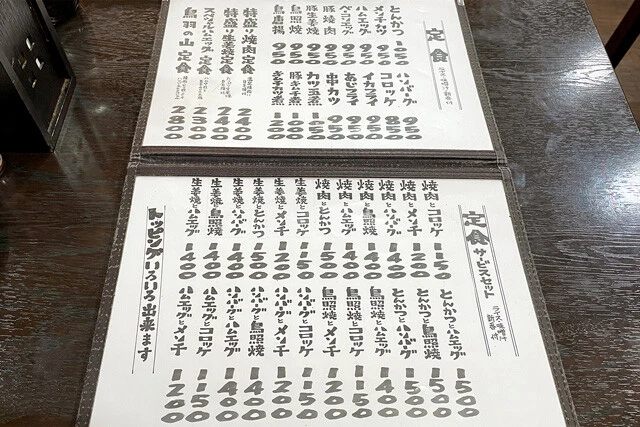 定食
ライス・味噌汁・新香付
とんかつ 1050
メンチカツ 950
ベーコンエッグ 950
豚焼肉 950
豚生姜焼 950
鳥照焼 950
鳥唐揚 950
ハンバーグ 950
コロッケ 850
イカフライ 950
あじフライ 950
串カツ 950
カツ玉煮 1050
豚キムチ煮 1050
かきカツ煮 1200
特盛り焼肉定食 2400
特盛り生姜焼定食 2400
スペシャルハムエッグ定食 2300
鳥羽の山定食 2800
定食 サービスセット
ライス・味噌汁 新香付
焼肉とコロッケ 1150
焼肉とメンチ 1200
焼肉とハンバーグ 1400
焼肉と鳥照焼 1400
焼肉とハムエッグ 1400
焼肉ととんかつ 1500
生姜焼とコロッケ 1150
生姜焼とメンチ 1200
生姜焼ととんかつ 1500
生姜焼とハンバーグ 1400
生姜焼と鳥照焼 1400
生姜焼とハムエッグ 1400
とんかつとハムエッグ 1500
とんかつと鳥照焼 1500
とんかつとハンバーグ 1500
鳥照焼とハムエッグ 1400
鳥照焼とコロッケ 1150
鳥照焼とメンチ 1200
ハンバーグとコロッケ 1150
ハンバーグとメンチ 1200
ハンバーグと鳥照焼 1400
ハンバーグとハムエッグ 1400
ハムエッグとコロッケ 1150
ハムエッグとメンチ 1200
トッピングいろいろ出来ます